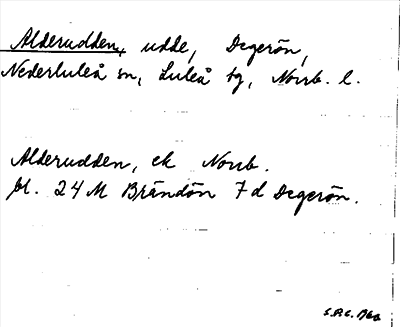 Alderudden, udde, Degerön,
Nederluleå sn, Luleå tg, Norrb. l.
Alderudden, ek Norrb.
bl. 24 M Brändön 7 d Degerön.